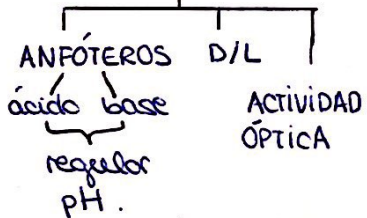 ANFÓTEROS D/L
ácido base ACTIVIDAD
ÓPTICA
regular
pH.